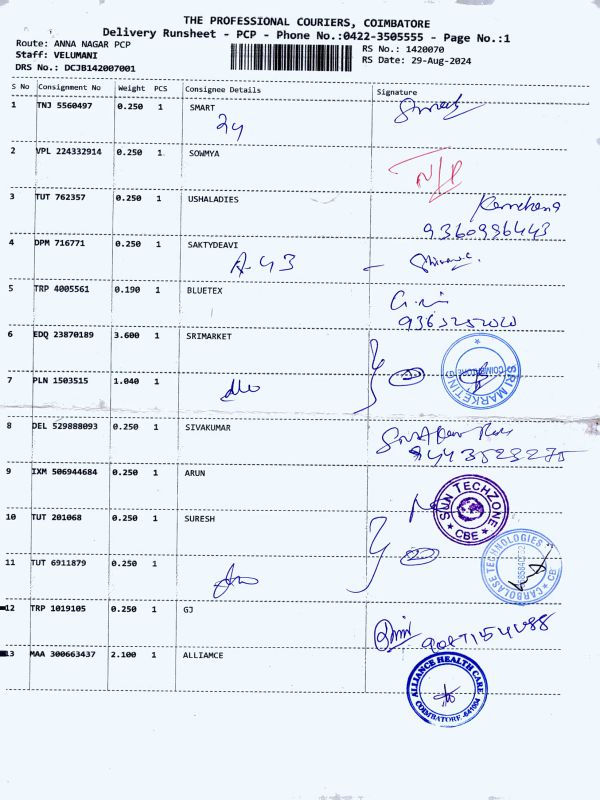 THE PROFESSIONAL COURIERS, COIMBATORE
Delivery Runsheet - PCP - Phone No.:0422-3505555 - Page No.:1
Route: ANNA NAGAR PCP
RS No.: 1420070
Staff: VELUMANI
RS Date: 29-Aug-2024
DRS No.: DCJB142007001
S No Consignment No Weight PCS Consignee Details Signature
1 TNJ 5560497 0.250 1 SMART
2 VPL 224332914 0.250 1 SOWMYA
N/P
3 TUT 762357 0.250 1 USHALADIES
9360996443
4 DPM 716771 0.250 1 SAKTYDEAVI
A-43
5 TRP 4005561 0.190 1 BLUETEX
6 EDQ 23870189 3.600 1 SRIMARKET
SRI MARKETING
COIMBATORE
7 PLN 1503515 1.040 1
8 DEL 529888093 0.250 1 SIVAKUMAR
9443523275
9 IXM 506944684 0.250 1 ARUN
SUN TECHZONE
CBE
10 TUT 201068 0.250 1 SURESH
CARBOLASE TECHNOLOGIES
CB
11 TUT 6911879 0.250 1
12 TRP 1019105 0.250 1 GJ
13 MAA 300663437 2.100 1 ALLIAMCE
ALLIANCE HEALTH CARE
COIMBATORE-641004